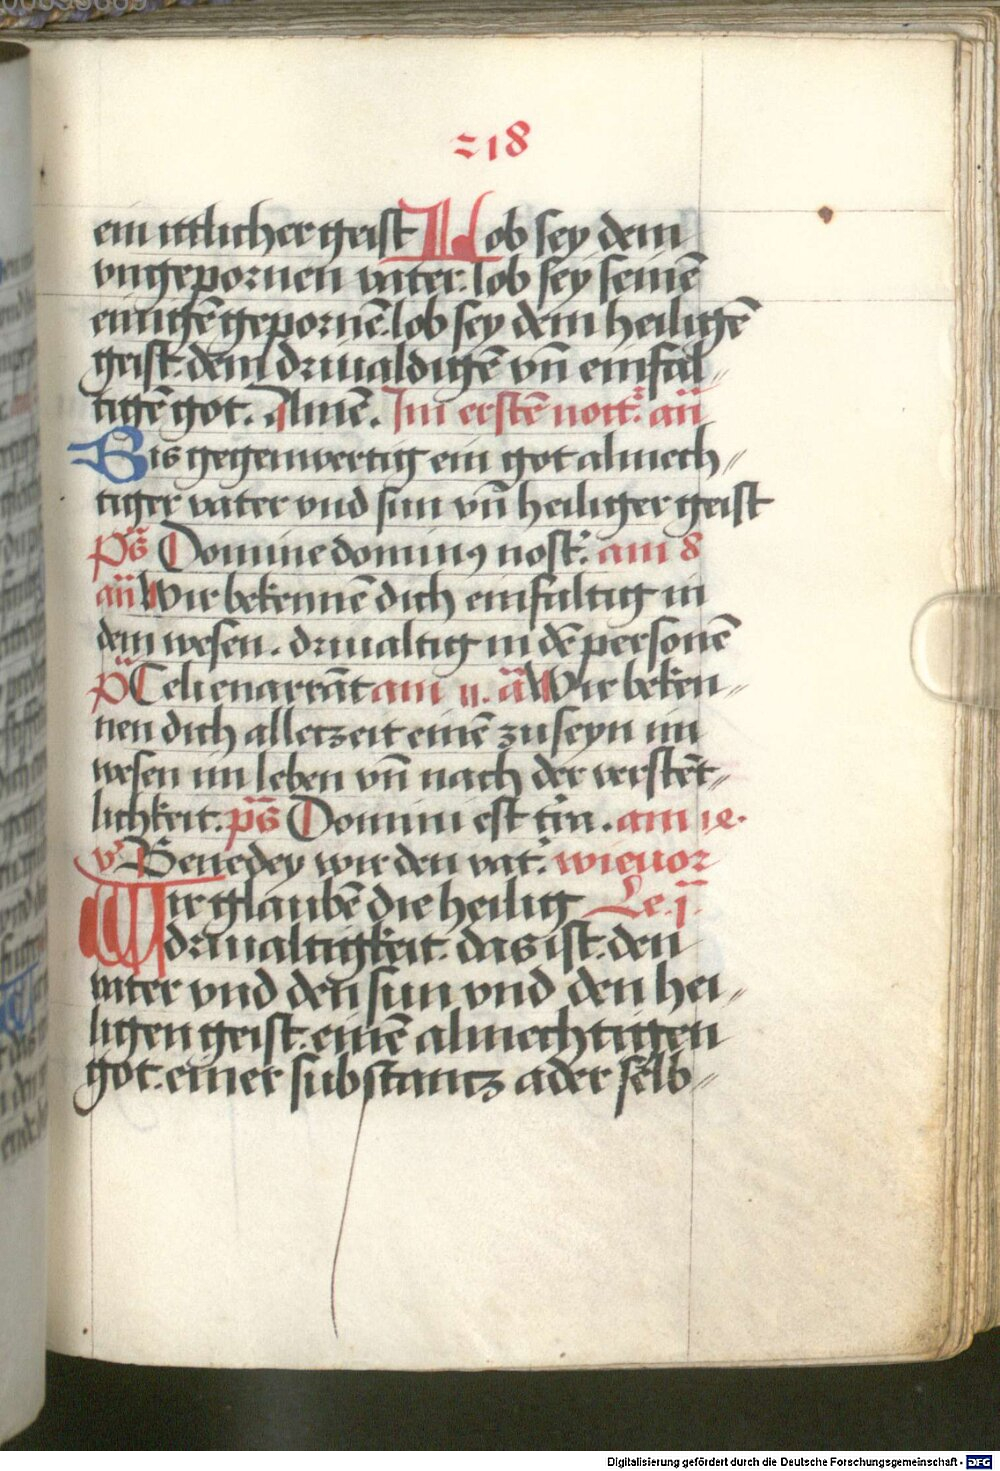 218
ein itlicher geist Lob sey dem
vngepornen vater. lob sey seinē
einigē gepornē. lob sey dem heiligē
geist. dem driualdigē vn̄ einfal„
tigē got. Amē. Im erstē nott᷑. an̄
Bis gegenwertig ein got almech„
tiger vater vnd sun vn̄ heiliger geist
ps̄ Domine dominꝰ nost᷑. am 8
an̄ Wir bekennē dich einfaltig in
dem wesen. driualtig in dē personē
p̄ Celi enarrāt am 11. ā Wir beken„
nen dich allerzeit einē zu seyn im
wesen im leben vn̄ nach der verstēt„
lichkeit. ps̄ Domini est t̄ra. am 12.
v᷑ Benedey wir den vat᷑. wie uor
Wir glaubē die heilig Le. j.
driualtigkeit. das ist. den
vater vnd den sun vnd den hei„
ligen geist. einē almechtigen
got. einer substantz ader selb„
Digitalisierung gefördert durch die Deutsche Forschungsgemeinschaft - DFG